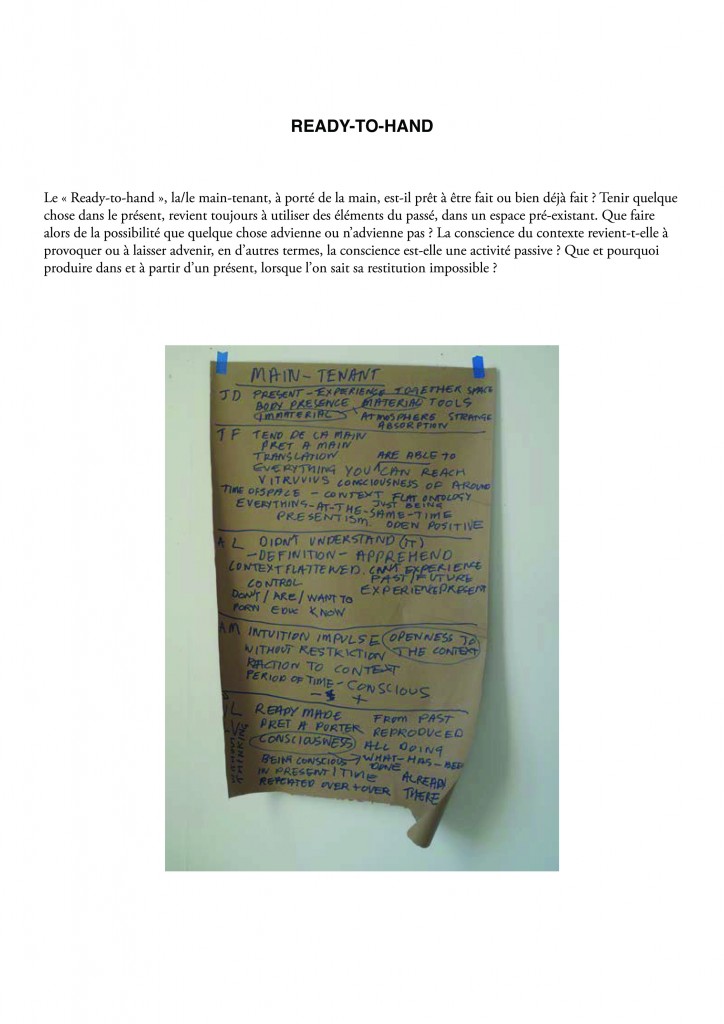 READY-TO-HAND
Le « Ready-to-hand », la/le main-tenant, à porté de la main, est-il prêt à être fait ou bien déjà fait ? Tenir quelque
chose dans le présent, revient toujours à utiliser des éléments du passé, dans un espace pré-existant. Que faire
alors de la possibilité que quelque chose advienne ou n’advienne pas ? La conscience du contexte revient-t-elle à
provoquer ou à laisser advenir, en d’autres termes, la conscience est-elle une activité passive ? Que et pourquoi
produire dans et à partir d’un présent, lorsque l’on sait sa restitution impossible ?
MAIN-TENANT
JD PRESENT-EXPERIENCE TOGETHER SPACE
BODY PRESENCE MATERIAL TOOLS
IMMATERIAL ATMOSPHERE STRANGE
ABSORPTION
TF TEND DE LA MAIN
PRET A MAIN
TRANSLATION ARE ABLE TO
EVERYTHING YOU CAN REACH
VITRUVIUS CONSCIOUSNESS OF AROUND
TIME OF SPACE - CONTEXT FLAT ONTOLOGY
JUST BEING
EVERYTHING-AT-THE-SAME-TIME
PRESENTISM. OPEN POSITIVE
AL DIDN'T UNDERSTAND (IT)
-DEFINITION- APPREHEND
CONTEXT FLATTENED. CAN'T EXPERIENCE
CONTROL PAST/FUTURE
DON'T/ARE/WANT TO EXPERIENCE PRESENT
PORN EDUC KNOW
AM INTUITION IMPULSE OPENNESS TO
WITHOUT RESTRICTION THE CONTEXT
REACTION TO CONTEXT
PERIOD OF TIME - CONSCIOUS
- +
JL READY MADE FROM PAST
PRET A PORTER REPRODUCED
CONSCIOUSNESS ALL DOING
BEING CONSCIOUS WHAT-HAS-BEEN
DONE
IN PRESENT TIME ALREADY
REPEATED OVER + OVER THERE
WITHOUT
THINKING